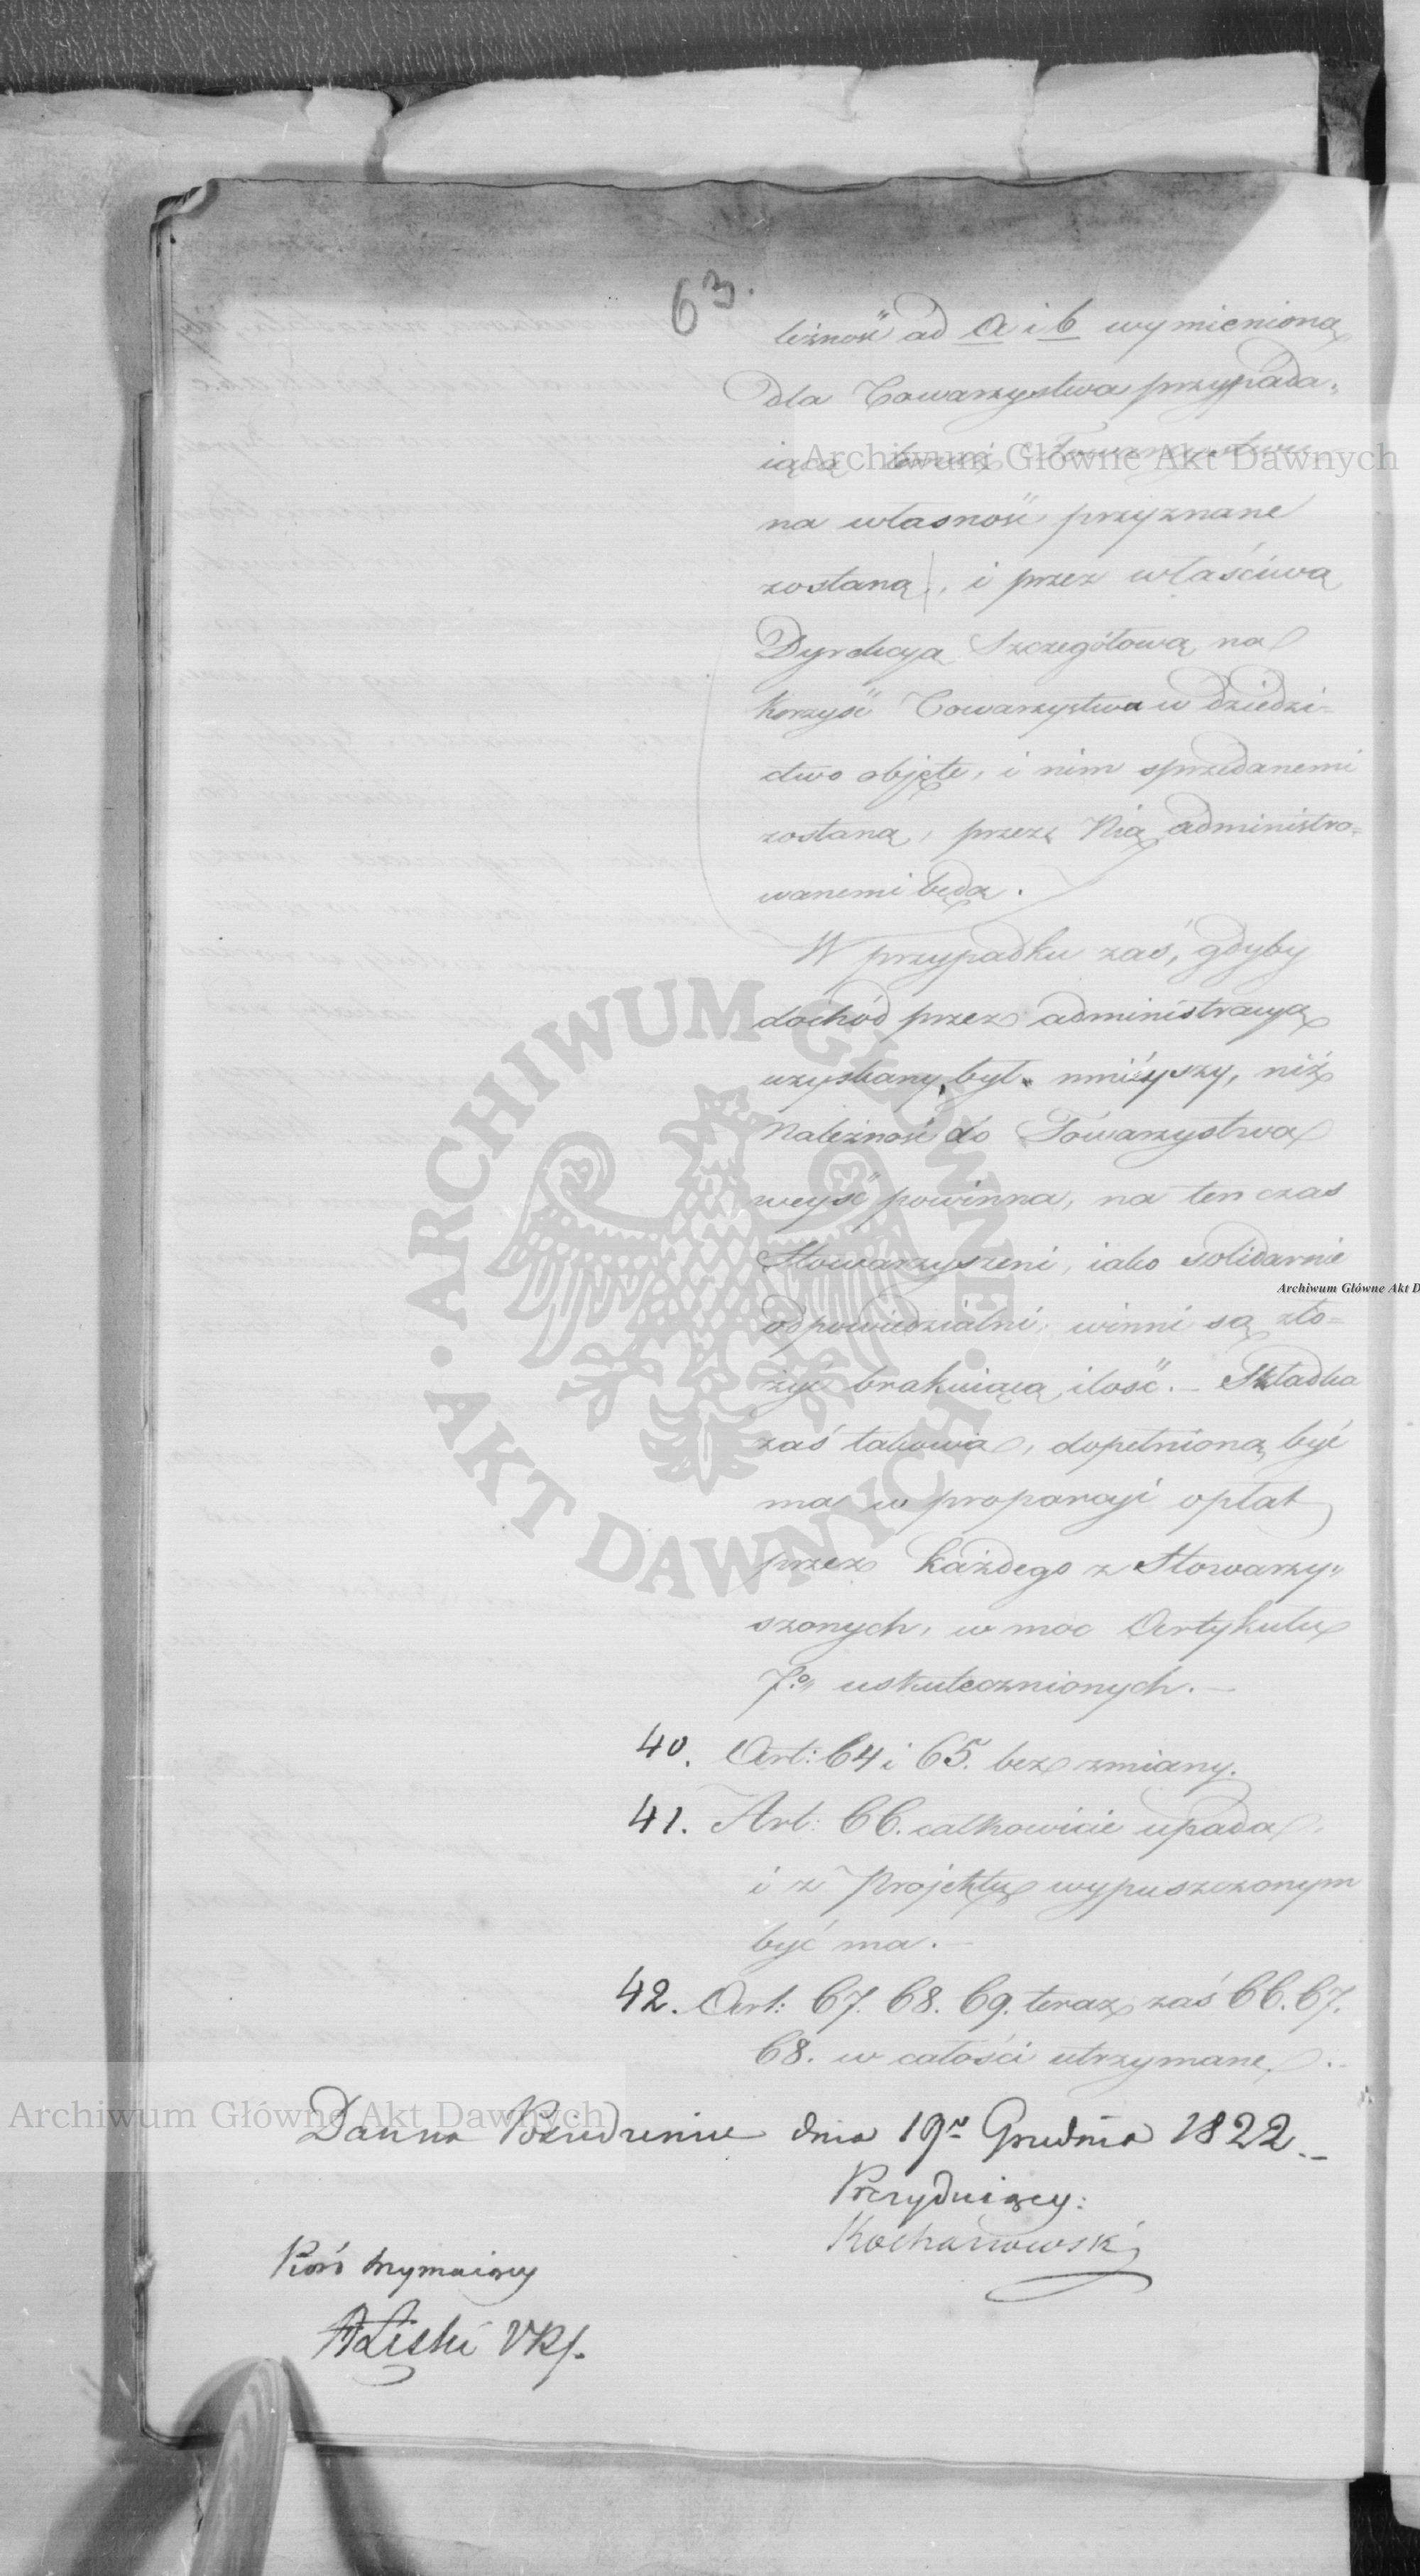 63.
leżność ad a i b wymienioną
dla Towarzystwa przypada-
iącą temuż Towarzystwu
na własność przyznane
zostaną, i przez właściwą
Dyrekcyą Szczegółową na
korzyść Towarzystwa w dziedzi-
ctwo objęte, i nim sprzedanemi
zostaną, przez Nią administro-
wanemi będą.
W przypadku zaś, gdyby
dochód przez administracyą
uzyskany, był mnieyszy, niż
Należność do Towarzystwa
weyść powinna, na ten czas
Stowarzyszeni, iako solidarnie
odpowiedzialni, winni są zło-
żyć brakuiącą ilość. – Składka
zaś takowa, dopełnioną być
ma w proporcyi opłat
przez każdego z Stowarzy-
szonych, w moc Artykułu
7.o uskutecznionych. –
40. Art: 64 i 65. bez zmiany.
41. Art: 66. całkowicie upada,
i z Projektu wypuszczonym
być ma. –
42. Art: 67. 68. 69. teraz zaś 66. 67.
68. w całości utrzymane.
dnia 19 Grudnia 1822. –
Prezyduiący:
Kochanowski
Pióro trzymaiący
ALiski
Archiwum Główne Akt Dawnych
Archiwum Główne Akt D
ARCHIWUM GŁÓWNE • AKT DAWNYCH •
Archiwum Główne Akt Dawnych